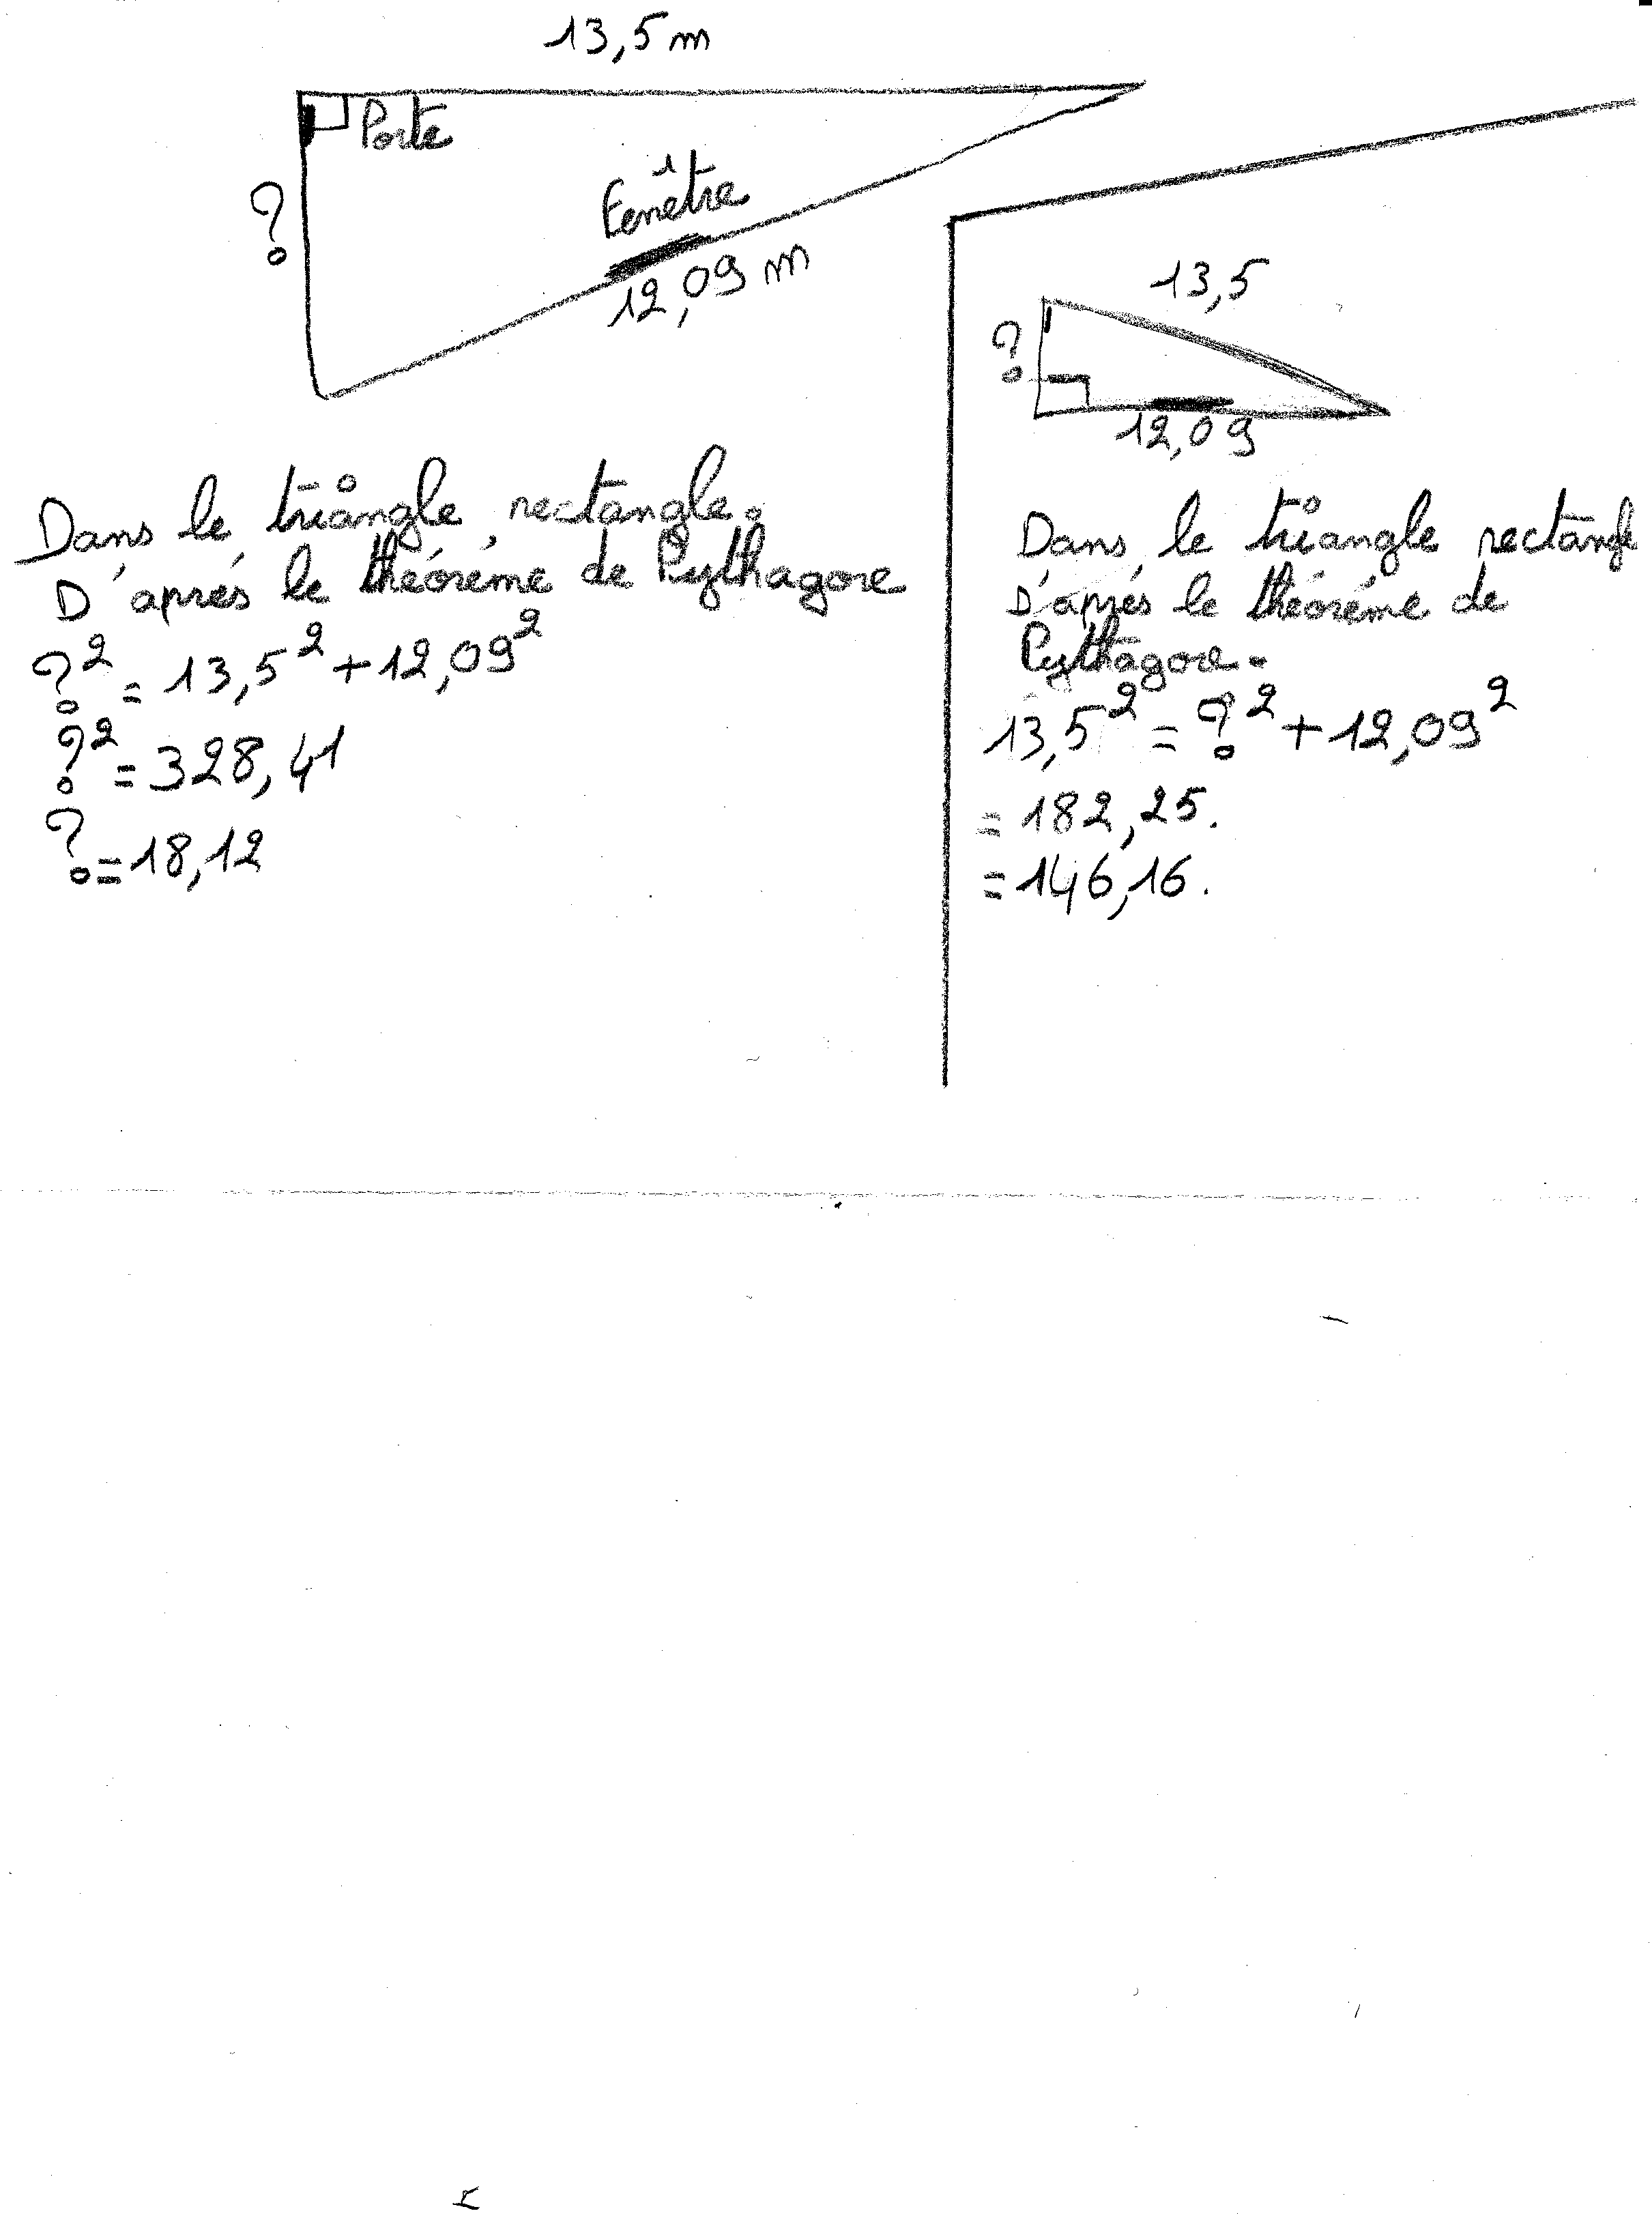 13,5 m
Porte
Fenêtre
?
12,09 m
Dans le triangle rectangle.
D'après le théorème de Pythagore
?² = 13,5² + 12,09²
?² = 328,41
? = 18,12
13,5
?
12,09
Dans le triangle rectangle
D'après le théorème de
Pythagore.
13,5² = ?² + 12,09²
= 182,25.
= 146,16.